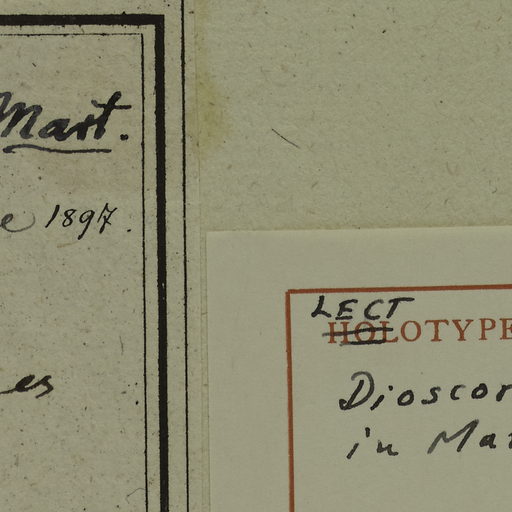 Mart.
1897.
es
LECT
HOLOTYPE
Dioscor
in Mar